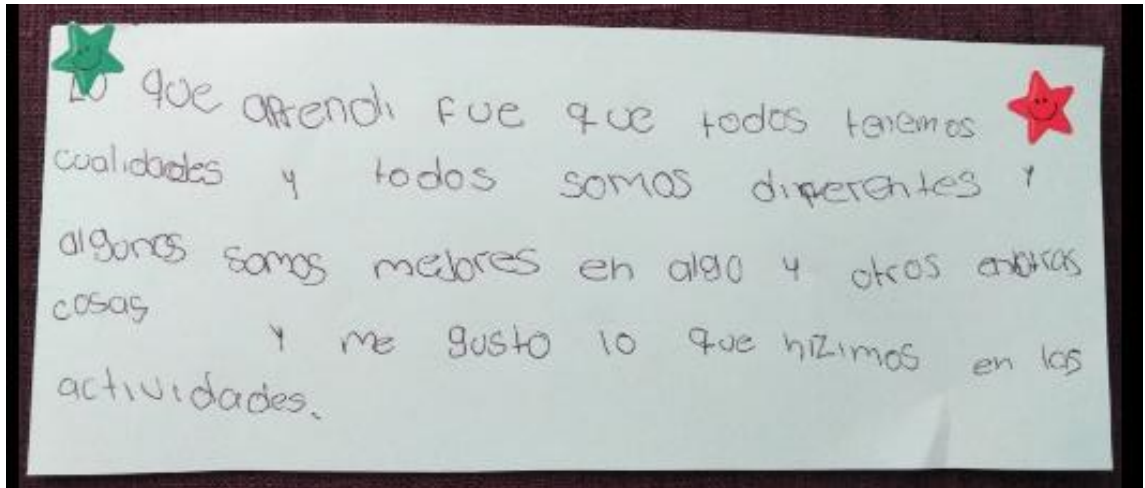 Lo que aprendi fue que todos tenemos
cualidades y todos somos diferentes y
algunos somos mejores en algo y otros en otras
cosas
y me gusto lo que hizimos en las
actividades.